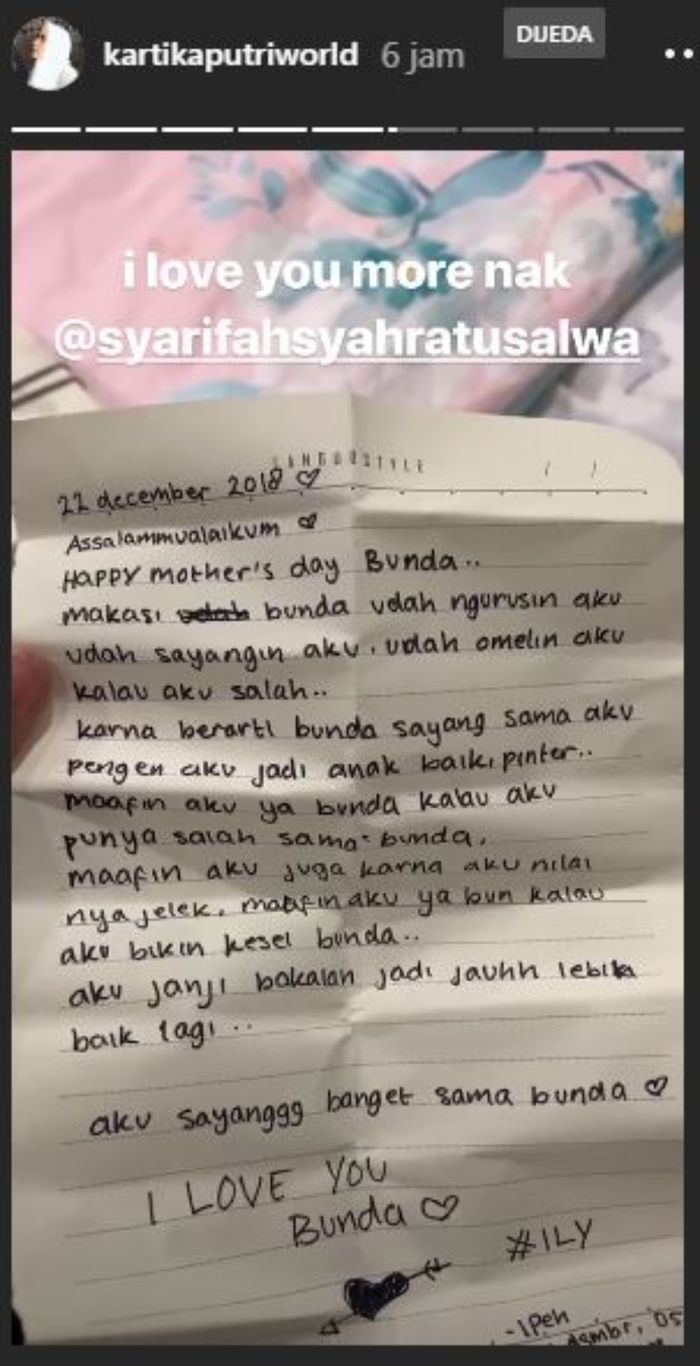 kartikaputriworld 6 jam
DIJEDA
i love you more nak
@syarifahsyahratusalwa
22 december 2018 ♡
Assalammualaikum ♡
HAPPY mother's day Bunda..
makasi udah bunda udah ngurusin aku
udah sayangin aku, udah omelin aku
kalau aku salah..
karna berarti bunda sayang sama aku
pengen aku jadi anak baik, pinter..
maafin aku ya bunda kalau aku
punya salah sama bunda,
maafin aku juga karna aku nilai
nya jelek, maafin aku ya bun kalau
aku bikin kesel bunda..
aku janji bakalan jadi jauhh lebih
baik lagi..
aku sayanggg banget sama bunda ♡
I LOVE YOU
Bunda ♡
#ILY
-Ipeh